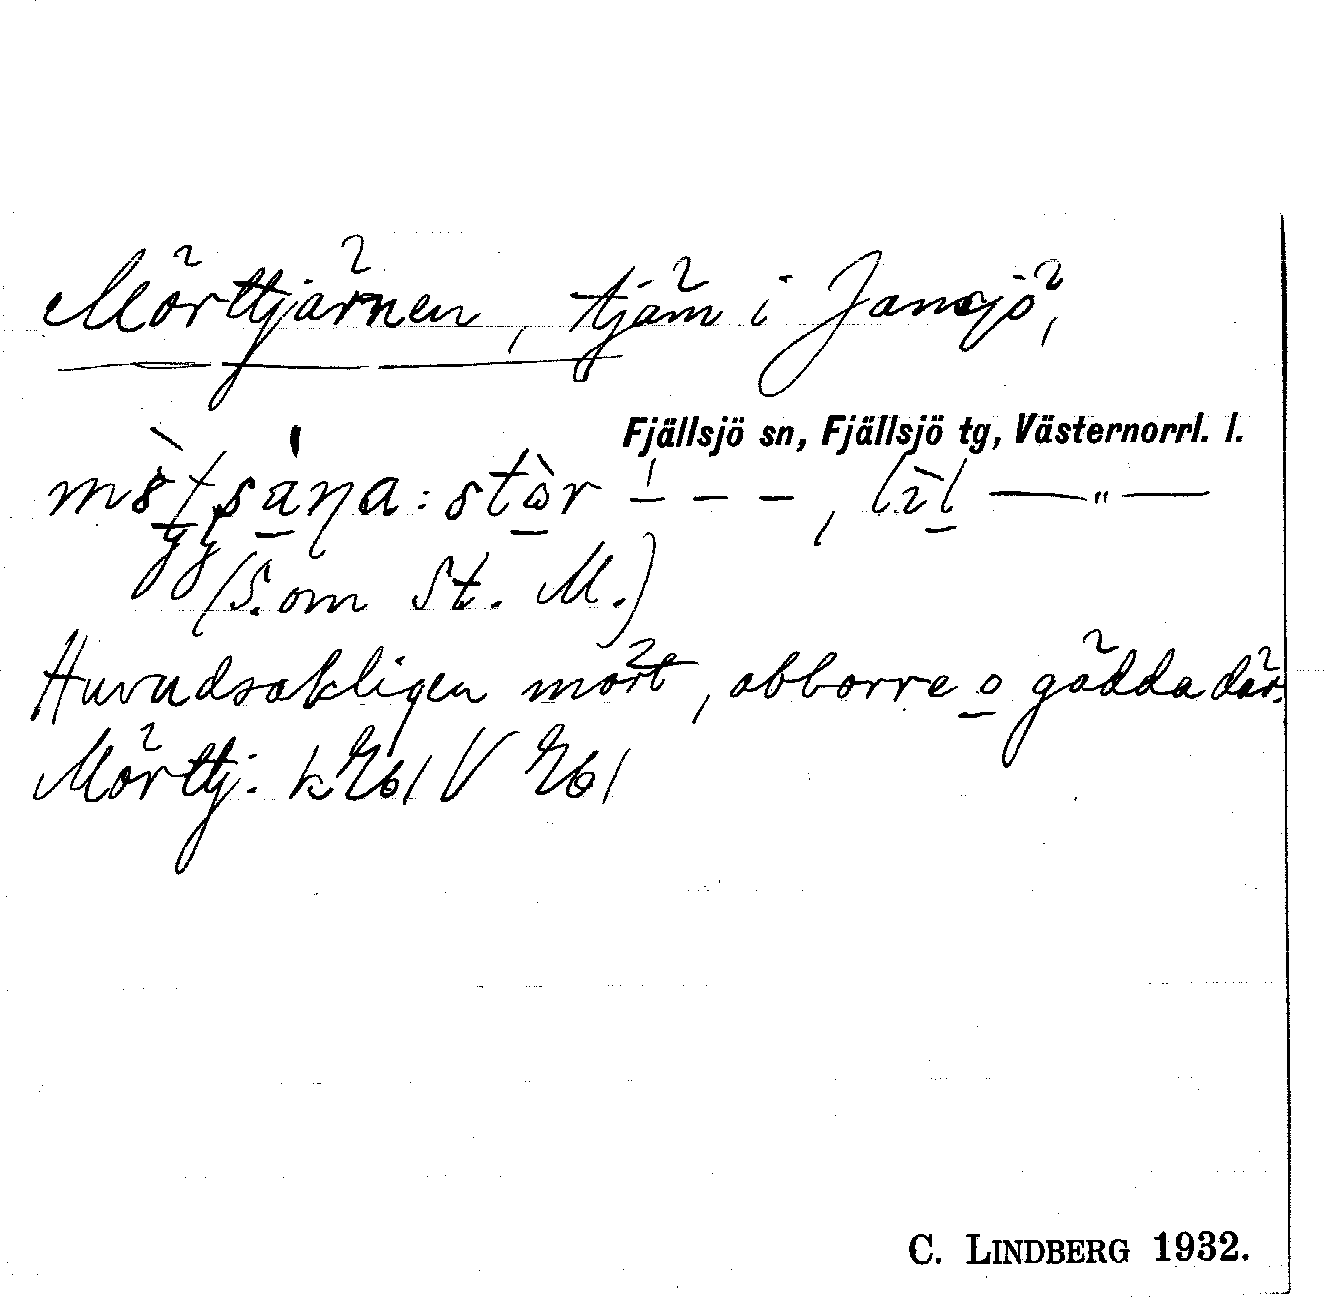 Mörttjärnen, tjärn i Jansjö,
Fjällsjö sn, Fjällsjö tg, Västernorrl. l.
stòr – – –, lìl —„—
(S. om St. M.)
Huvudsakligen mört, abborre o gädda där.
Mörttj.
C. LINDBERG 1932.